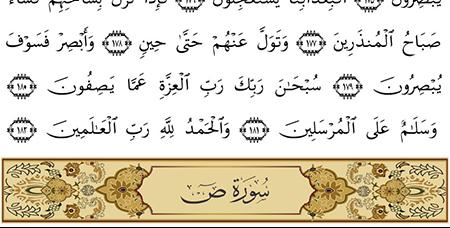 يُبْصِرُونَ ﴿١٧٥﴾ أَفَبِعَذَابِنَا يَسْتَعْجِلُونَ ﴿١٧٦﴾ فَإِذَا نَزَلَ بِسَاحَتِهِمْ فَسَآءَ
صَبَاحُ ٱلْمُنذَرِينَ ﴿١٧٧﴾ وَتَوَلَّ عَنْهُمْ حَتَّىٰ حِينٍ ﴿١٧٨﴾ وَأَبْصِرْ فَسَوْفَ
يُبْصِرُونَ ﴿١٧٩﴾ سُبْحَـٰنَ رَبِّكَ رَبِّ ٱلْعِزَّةِ عَمَّا يَصِفُونَ ﴿١٨٠﴾
وَسَلَـٰمٌ عَلَى ٱلْمُرْسَلِينَ ﴿١٨١﴾ وَٱلْحَمْدُ لِلَّهِ رَبِّ ٱلْعَـٰلَمِينَ ﴿١٨٢﴾
سُورَةُ صٓ